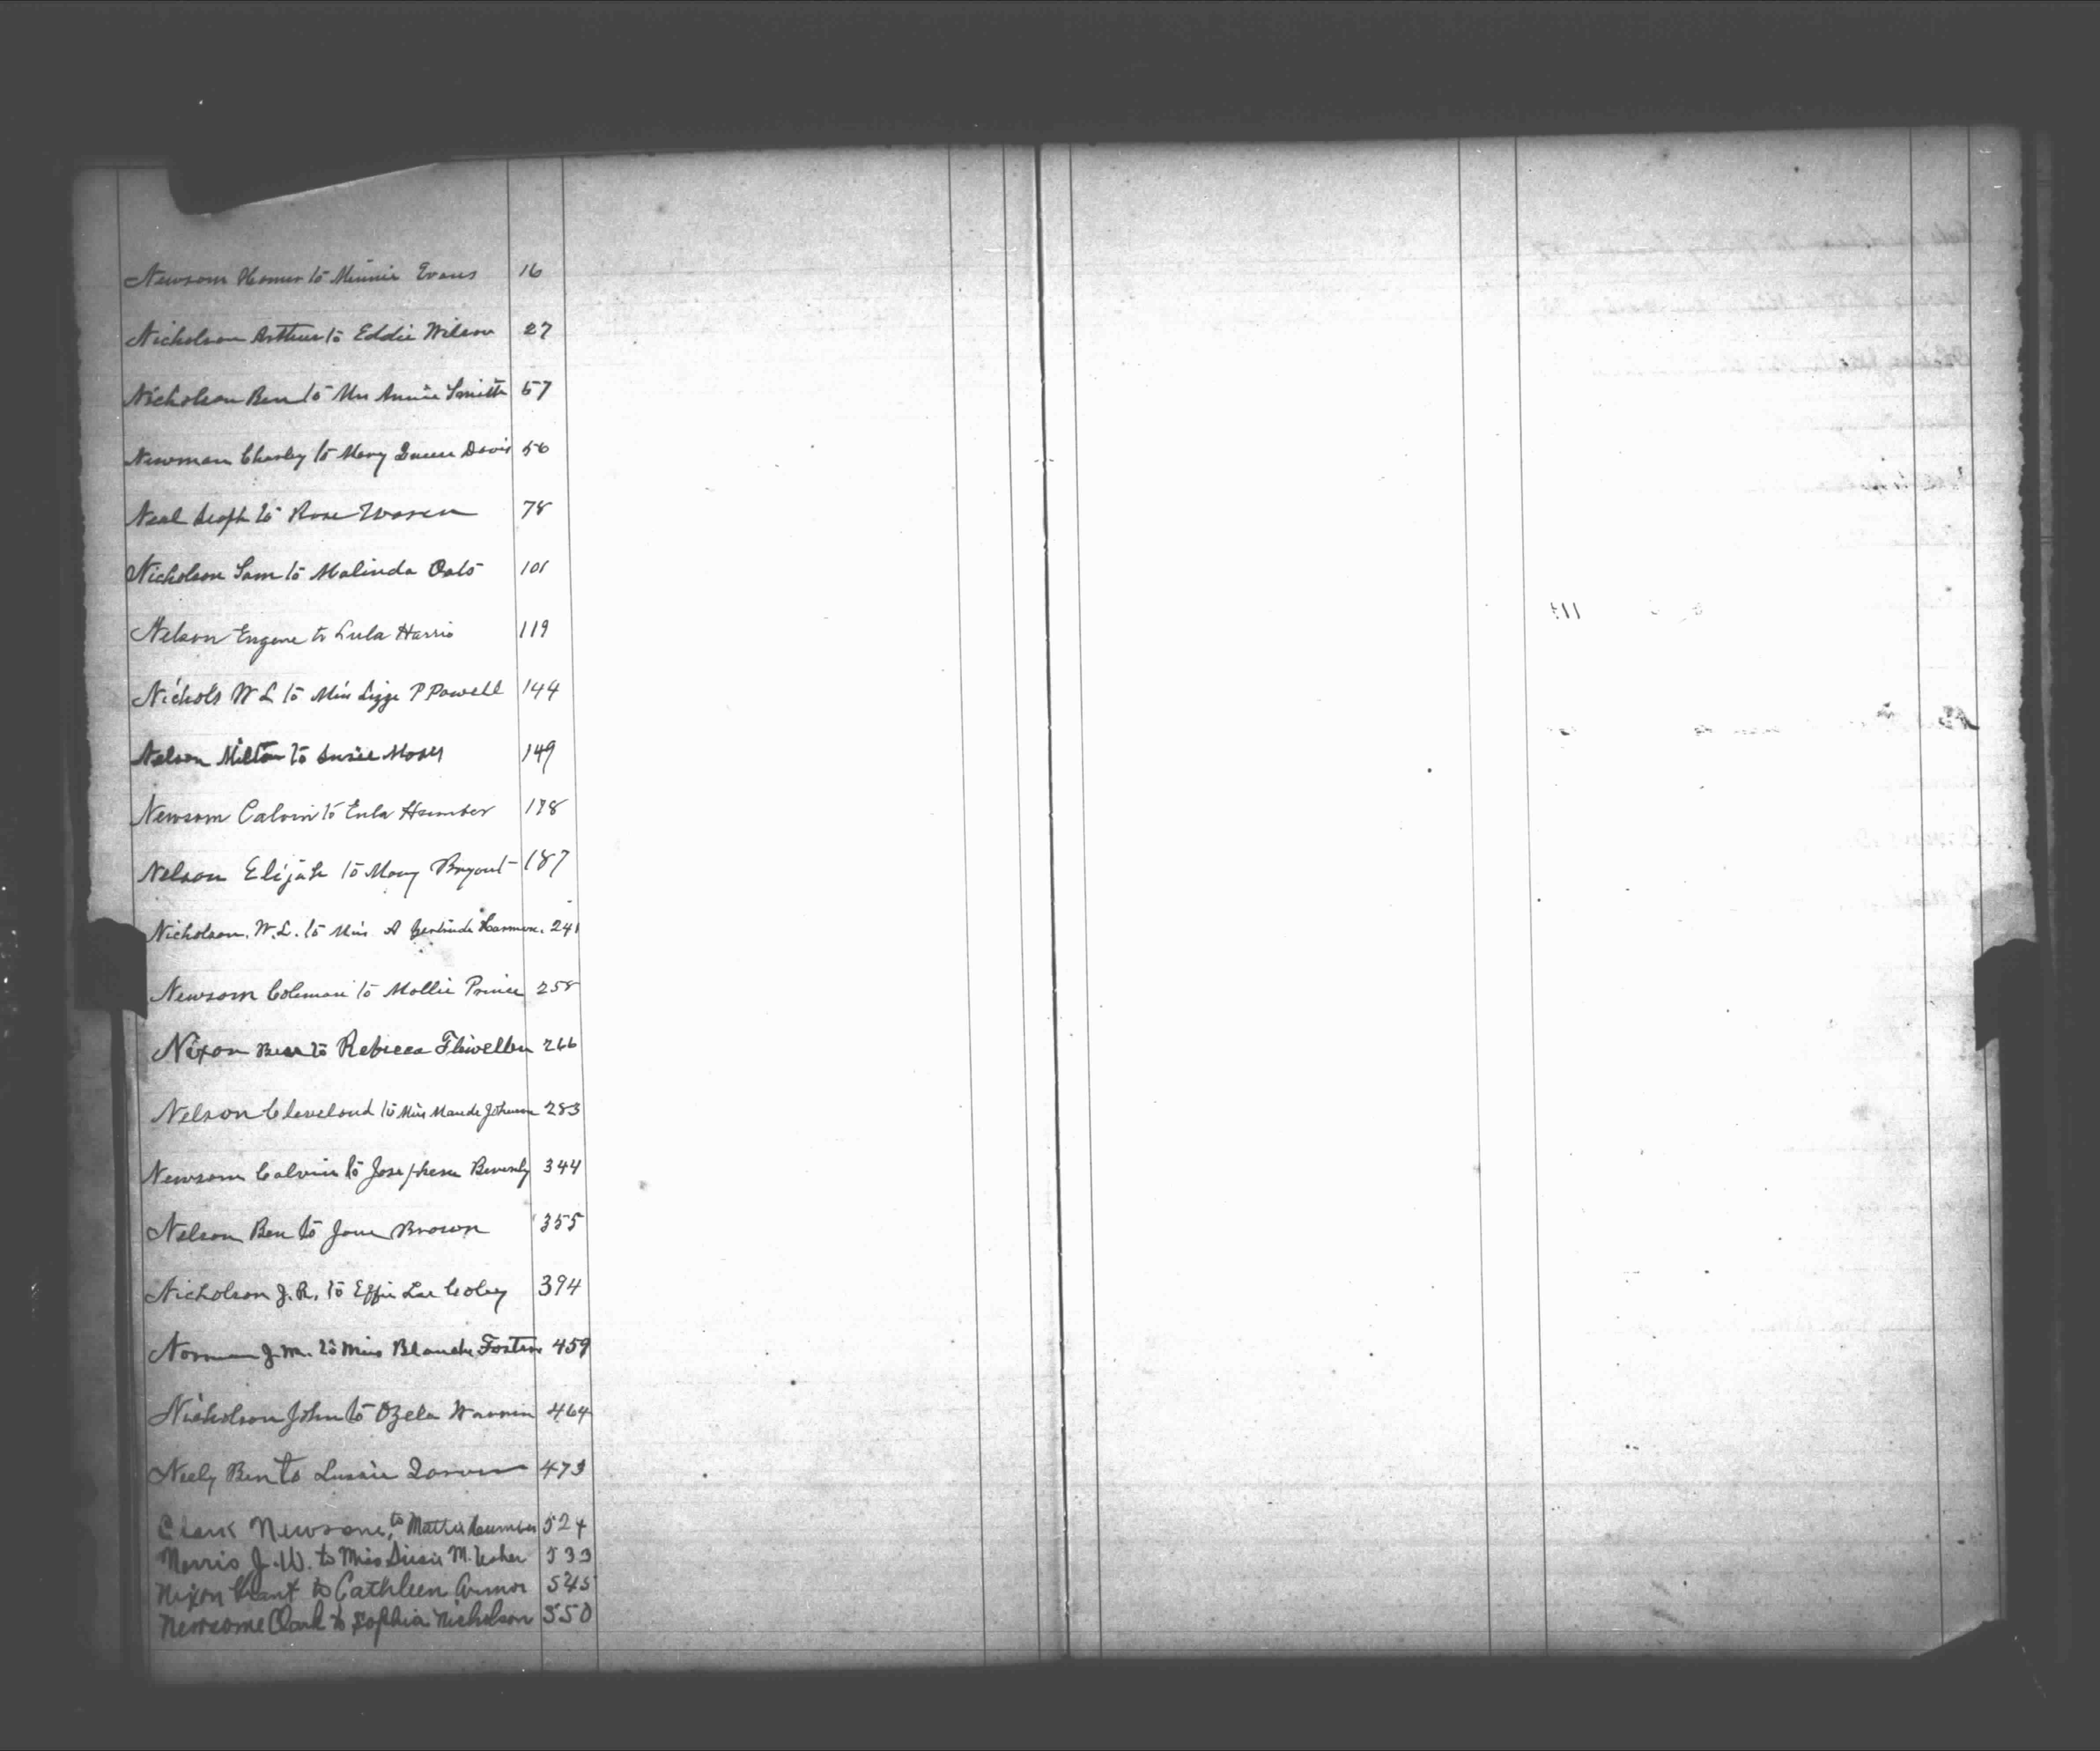 Newsom Homer to Minnie Evans 16
Nicholson Arthur to Eddie Wilson 27
Nicholson Ben to Mrs Annie Smith 57
Newman Charley to Mary Davis 56
Neal to Rose 78
Nicholson Sam to Malinda Oats 101
Nelson Eugene to Lula Harris 119
Nichols W L to Miss Lizze P Powell 144
Nelson Milton to Susie Moses 149
Newsom Calvin to Eula Humber 178
Nelson Elijah to Mary Bryant 187
Nicholson. W. L. to Miss A Gertrude Harmon. 241
Newsom Coleman to Mollie Prince 258
Nixon Ben to Rebecca Flewellen 266
Nelson Cleveland to Miss Maude Johnson 283
Newsom Calvin to Beverly 344
Nelson Ben to Jane Brown 355
Nicholson J. R. to Effie Lee Coley 394
Norman J. M. to Miss Blanche 459
Nicholson John to Ozela 464
Neely Ben to 473
Clark Newsone, to Mattie Humber 524
Norris J. W. to Miss Susie M. Usher 533
Nixon Grant to Cathleen Armor 545
Newsome Clark to Sophia Nicholson 550